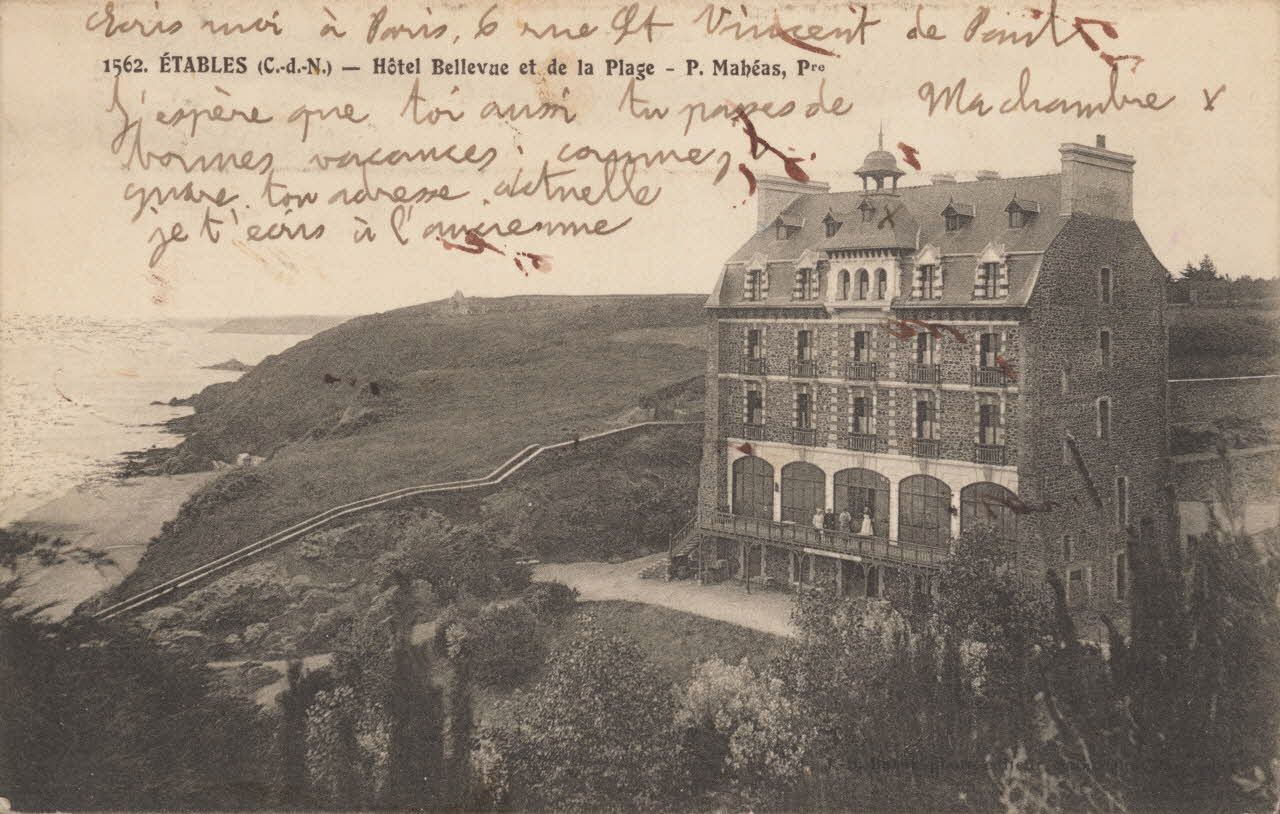 Ecris moi à Paris, 6 rue St Vincent de Paul
1562. ÉTABLES (C.-d.-N.) — Hôtel Bellevue et de la Plage - P. Mahéas, Pre
J'espère que toi aussi tu passes de
Ma chambre x
bonnes vacances. comme j'i
gnore ton adresse actuelle
je t'écris à l'ancienne
x